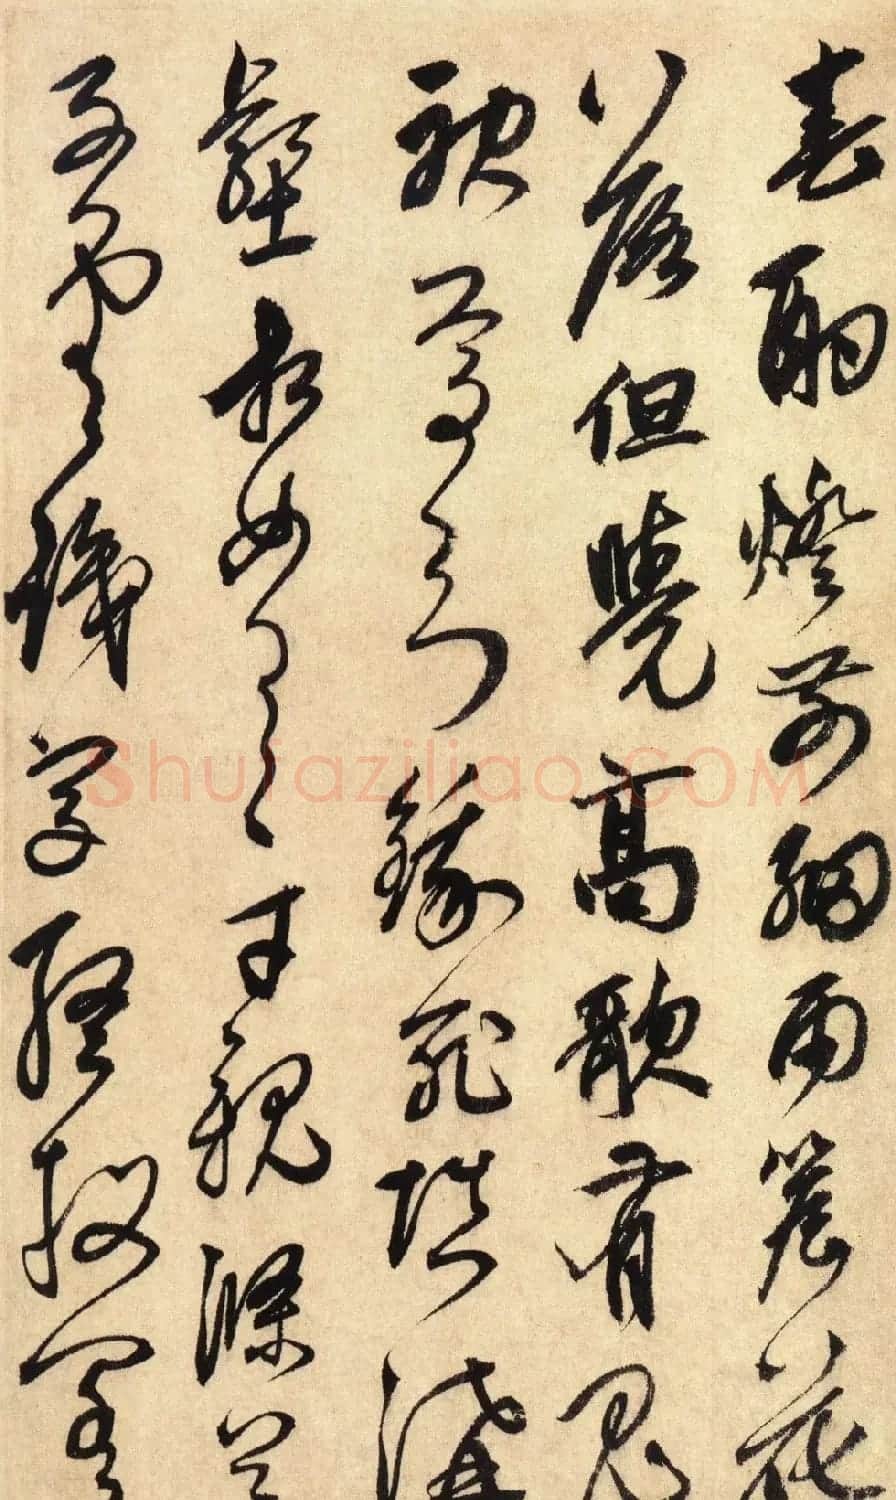 春酌燈前細雨簷花
落但覺高歌有鬼
神焉知餓死填溝
壑相如逸才親滌器
子雲識字終投閣
Shufaziliao.COM